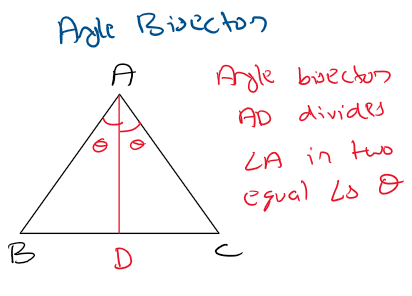 Angle Bisector
A
Angle bisector
AD divides
∠A in two
equal ∠s θ
θ θ
B D C